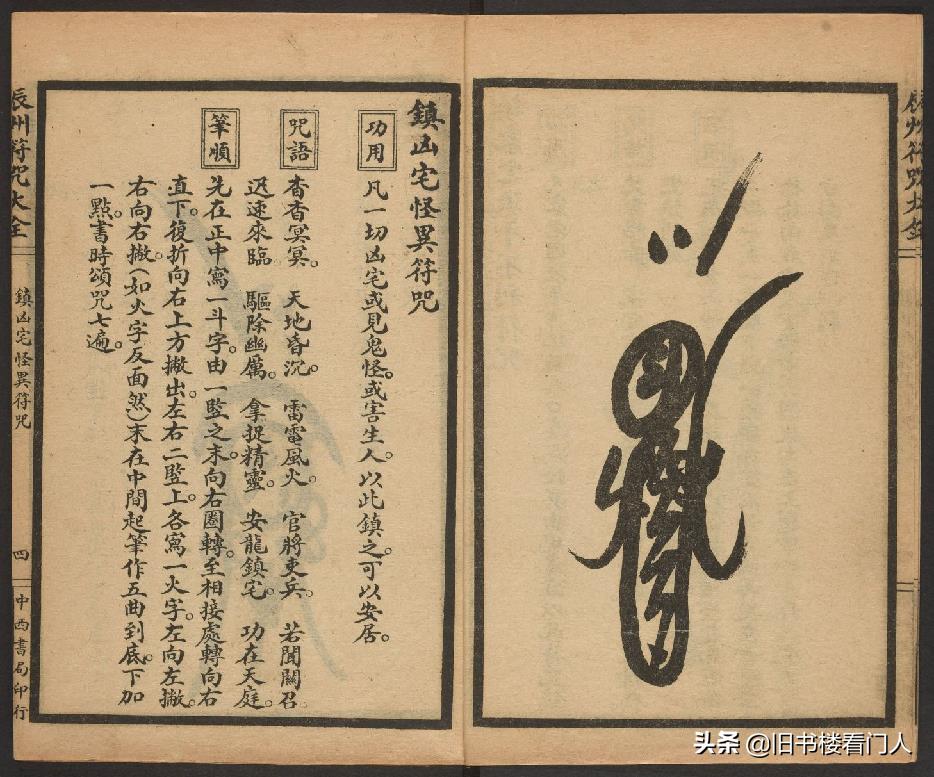 辰州符咒大全
鎮凶宅怪異符咒
功用
凡一切凶宅或見鬼怪。或害生人。以此鎮之。可以安居。
咒語
杳杳冥冥。 天地昏沉。 雷電風火。 官將吏兵。 若聞關召。
迅速來臨 驅除幽厲。 拿捉精靈。 安龍鎮宅。 功在天庭。
筆順
先在正中寫一斗字。由一監之末。向右圈轉。至相接處轉向右
直下。復折向右上方撇出。左右二監上。各寫一火字。左向左撇。
右向右撇。(如火字反面然)末在中間起筆。作五曲到底。下加
一點。書時頌咒七遍。
辰州符咒大全
鎮凶宅怪異符咒
四
中西書局印行
头条 @旧书楼看门人